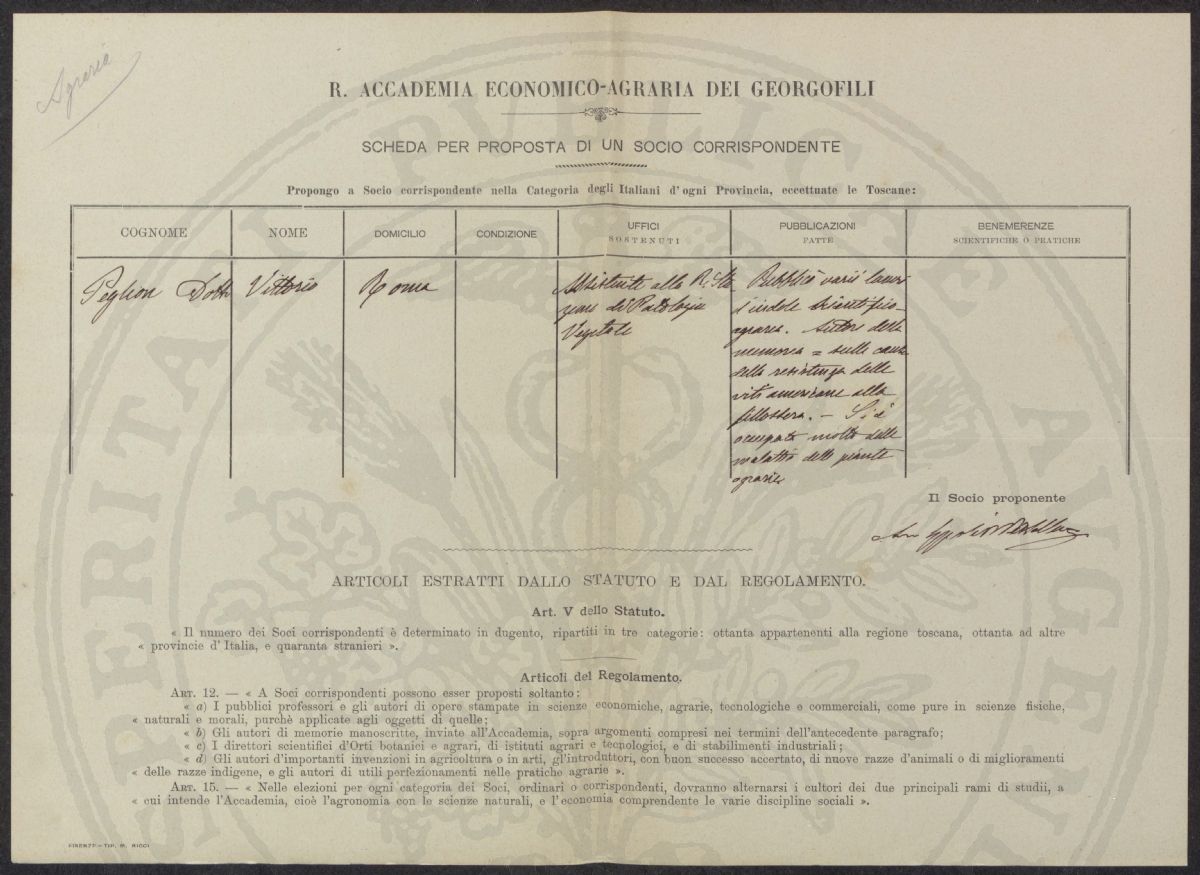 Agraria
R. ACCADEMIA ECONOMICO-AGRARIA DEI GEORGOFILI
SCHEDA PER PROPOSTA DI UN SOCIO CORRISPONDENTE
Propongo a Socio corrispondente nella Categoria degli Italiani d'ogni Provincia, eccettuate le Toscane:
COGNOME
NOME
DOMICILIO
CONDIZIONE
UFFICI
SOSTENUTI
PUBBLICAZIONI
FATTE
BENEMERENZE
SCIENTIFICHE O PRATICHE
Peglion Dott.
Vittorio
Roma
Assistente alla R. Sta
zione di Patologia
Vegetale
Pubblicò varii lavori
d'indole scientifico-
agraria. Autore della
memoria = sulle cause
della resistenza delle
viti americane alla
fillossera. — Si è
occupato molto delle
malattie delle piante
agrarie
Il Socio proponente
ARTICOLI ESTRATTI DALLO STATUTO E DAL REGOLAMENTO.
Art. V dello Statuto.
« Il numero dei Soci corrispondenti è determinato in dugento, ripartiti in tre categorie: ottanta appartenenti alla regione toscana, ottanta ad altre
« provincie d'Italia, e quaranta stranieri ».
Articoli del Regolamento.
ART. 12. — « A Soci corrispondenti possono esser proposti soltanto:
« a) I pubblici professori e gli autori di opere stampate in scienze economiche, agrarie, tecnologiche e commerciali, come pure in scienze fisiche,
« naturali e morali, purchè applicate agli oggetti di quelle;
« b) Gli autori di memorie manoscritte, inviate all'Accademia, sopra argomenti compresi nei termini dell'antecedente paragrafo;
« c) I direttori scientifici d'Orti botanici e agrari, di istituti agrari e tecnologici, e di stabilimenti industriali;
« d) Gli autori d'importanti invenzioni in agricoltura o in arti, gl'introduttori, con buon successo accertato, di nuove razze d'animali o di miglioramenti
« delle razze indigene, e gli autori di utili perfezionamenti nelle pratiche agrarie ».
ART. 15. — « Nelle elezioni per ogni categoria dei Soci, ordinari o corrispondenti, dovranno alternarsi i cultori dei due principali rami di studii, a
« cui intende l'Accademia, cioè l'agronomia con le scienze naturali, e l'economia comprendente le varie discipline sociali ».
FIRENZE - TIP. M. RICCI
PROSPERITATI PUBLICAE AUGENDAE